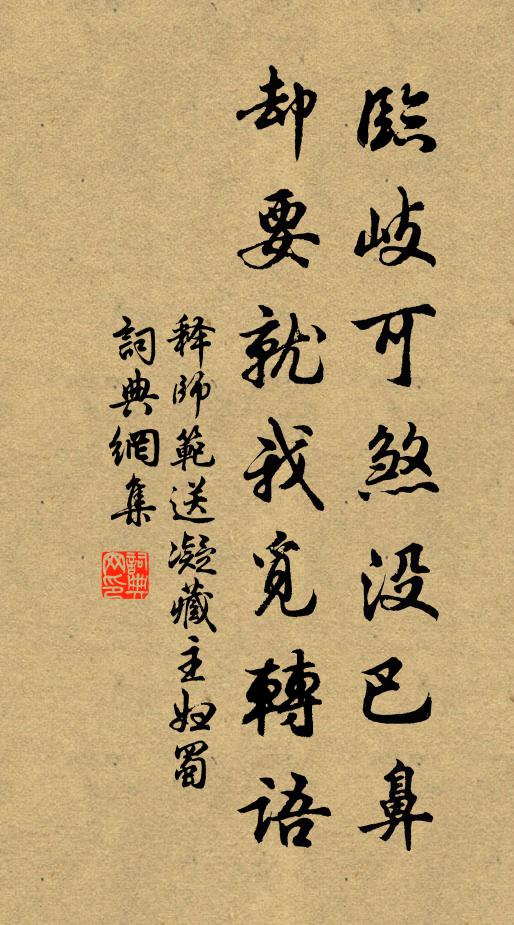 臨岐可煞没巴鼻
却要就我覓轉語
释師範送凝藏主蜀
詞典網集
詞典网印